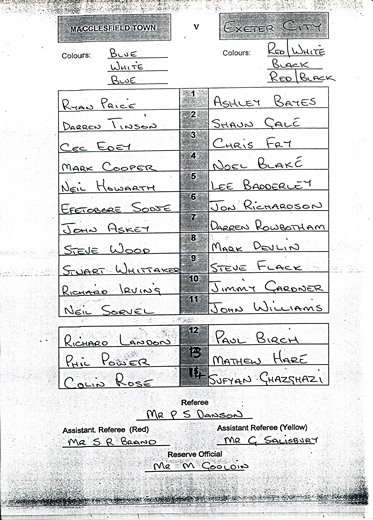 MACCLESFIELD TOWN v EXETER CITY
Colours: BLUE Colours: RED/WHITE
WHITE BLACK
BLUE RED/BLACK
RYAN PRICE 1 ASHLEY BAYES
DARREN TINSON 2 SHAUN GALE
CEC EDEY 3 CHRIS FRY
MARK COOPER 4 NOEL BLAKE
NEIL HOWARTH 5 LEE BADDERLEY
EFETOBORE SODJE 6 JON RICHARDSON
JOHN ASKEY 7 DARREN ROWBOTHAM
STEVE WOOD 8 MARK DEVLIN
STUART WHITTAKER 9 STEVE FLACK
RICHARD IRVING 10 JIMMY GARDNER
NEIL SORVEL 11 JOHN WILLIAMS
RICHARD LANDON 12 PAUL BIRCH
PHIL POWER 13 MATHEW HARE
COLIN ROSE 14 SUFYAN GHAZGHAZI
Referee
MR P S DANSON
Assistant. Referee (Red) Assistant Referee (Yellow)
MR S R BRAND MR G SALISBURY
Reserve Official
MR M COOLDIN